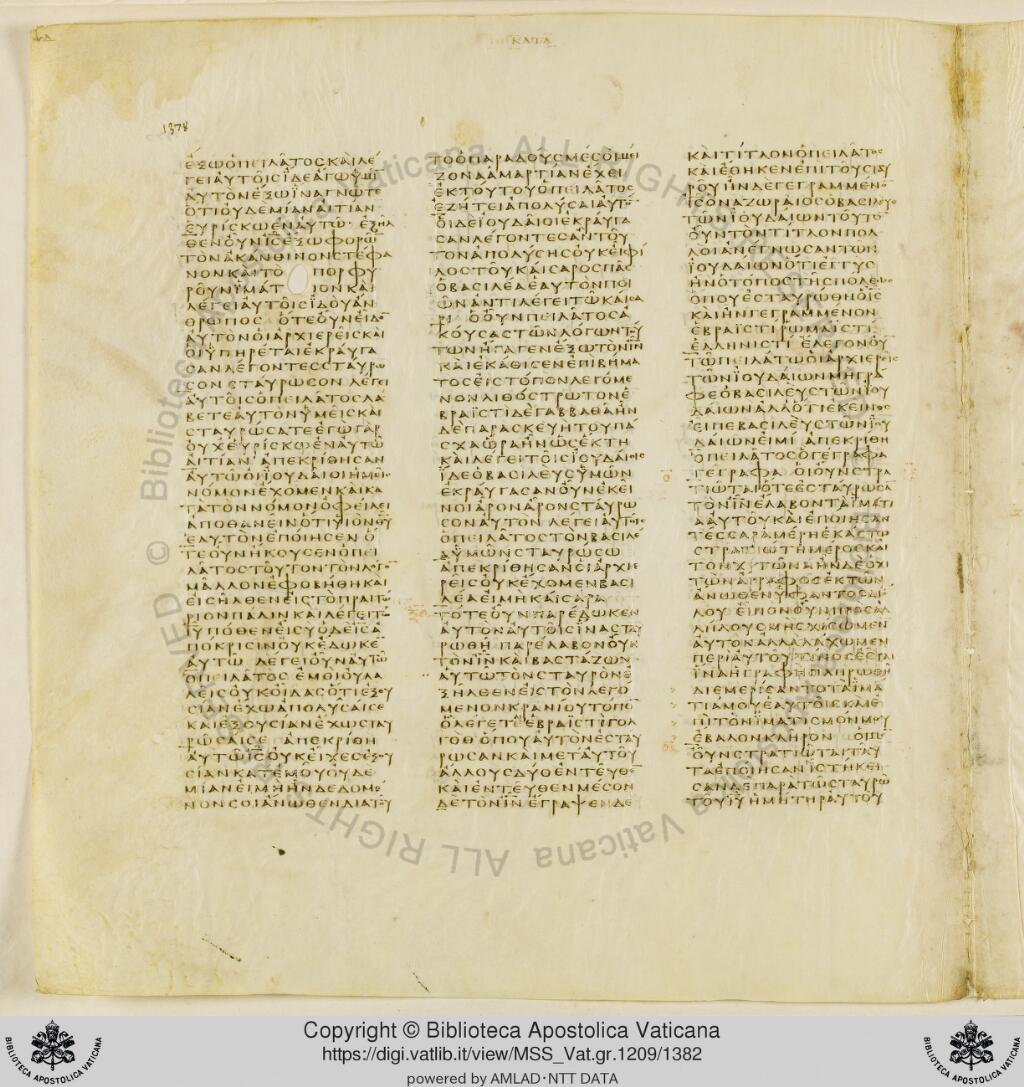 ΚΑΤΑ
1378
ΕΞΩΟΠΕΙΛΑΤΟΣΚΑΙΛΕ
ΓΕΙΑΥΤΟΙΣΙΔΕΑΓΩΥΜΙ
ΑΥΤΟΝΕΞΩΙΝΑΓΝΩΤΕ
ΟΤΙΟΥΔΕΜΙΑΝΑΙΤΙΑΝ
ΕΥΡΙΣΚΩΕΝΑΥΤΩ ΕΞΗΛ
ΘΕΝΟΥΝΙΣΕΞΩΦΟΡΩ
ΤΟΝΑΚΑΝΘΙΝΟΝΣΤΕΦΑ
ΝΟΝΚΑΙΤΟ ΠΟΡΦΥ
ΡΟΥΝΙΜΑΤ ΙΟΝΚΑΙ
ΛΕΓΕΙΑΥΤΟΙΣΙΔΟΥΑΝ
ΘΡΩΠΟΣ ΟΤΕΟΥΝΕΙΔΟ
ΑΥΤΟΝΟΙΑΡΧΙΕΡΕΙΣΚΑΙ
ΟΙΥΠΗΡΕΤΑΙΕΚΡΑΥΓΑ
ΣΑΝΛΕΓΟΝΤΕΣΣΤΑΥΡΩ
ΣΟΝΣΤΑΥΡΩΣΟΝ ΛΕΓΕΙ
ΑΥΤΟΙΣΟΠΕΙΛΑΤΟΣΛΑ
ΒΕΤΕΑΥΤΟΝΥΜΕΙΣΚΑΙ
ΣΤΑΥΡΩΣΑΤΕΕΓΩΓΑΡ
ΟΥΧΕΥΡΙΣΚΩΕΝΑΥΤΩ
ΑΙΤΙΑΝ ΑΠΕΚΡΙΘΗΣΑΝ
ΑΥΤΩΟΙΙΟΥΔΑΙΟΙΗΜΕΙΣ
ΝΟΜΟΝΕΧΟΜΕΝΚΑΙΚΑ
ΤΑΤΟΝΝΟΜΟΝΟΦΕΙΛΕΙ
ΑΠΟΘΑΝΕΙΝΟΤΙΥΙΟΝΘΥ
ΕΑΥΤΟΝΕΠΟΙΗΣΕΝ Ο
ΤΕΟΥΝΗΚΟΥΣΕΝΟΠΕΙ
ΛΑΤΟΣΤΟΥΤΟΝΤΟΝΛΟΓΟ
ΜΑΛΛΟΝΕΦΟΒΗΘΗΚΑΙ
ΕΙΣΗΛΘΕΝΕΙΣΤΟΠΡΑΙΤΩ
ΡΙΟΝΠΑΛΙΝΚΑΙΛΕΓΕΙΤΩ
ΙΥΠΟΘΕΝΕΙΣΥΟΔΕΙΣΑ
ΠΟΚΡΙΣΙΝΟΥΚΕΔΩΚΕ
ΑΥΤΩ ΛΕΓΕΙΟΥΝΑΥΤΩ
ΟΠΕΙΛΑΤΟΣ ΕΜΟΙΟΥΛΑ
ΛΕΙΣΟΥΚΟΙΔΑΣΟΤΙΕΞΟΥ
ΣΙΑΝΕΧΩΑΠΟΛΥΣΑΙΣΕ
ΚΑΙΕΞΟΥΣΙΑΝΕΧΩΣΤΑΥ
ΡΩΣΑΙΣΕ ΑΠΕΚΡΙΘΗ
ΑΥΤΩΙΣΟΥΚΕΙΧΕΣΕΞΟΥ
ΣΙΑΝΚΑΤΕΜΟΥΟΥΔΕ
ΜΙΑΝΕΙΜΗΗΝΔΕΔΟΜΕ
ΝΟΝΣΟΙΑΝΩΘΕΝΔΙΑΤΟΥ
ΤΟΟΠΑΡΑΔΟΥΣΜΕΣΟΙΜΕΙ
ΖΟΝΑΑΜΑΡΤΙΑΝΕΧΕΙ
ΕΚΤΟΥΤΟΥΟΠΕΙΛΑΤΟΣ
ΕΖΗΤΕΙΑΠΟΛΥΣΑΙΑΥΤΟ
ΟΙΔΕΙΟΥΔΑΙΟΙΕΚΡΑΥΓΑ
ΣΑΝΛΕΓΟΝΤΕΣΑΝΤΟΥ
ΤΟΝΑΠΟΛΥΣΗΣΟΥΚΕΙΦΙ
ΛΟΣΤΟΥΚΑΙΣΑΡΟΣΠΑΣ
ΟΒΑΣΙΛΕΑΕΑΥΤΟΝΠΟΙ
ΩΝΑΝΤΙΛΕΓΕΙΤΩΚΑΙΣΑ
ΡΙ ΟΟΥΝΠΕΙΛΑΤΟΣΑ
ΚΟΥΣΑΣΤΩΝΛΟΓΩΝΤΟΥ
ΤΩΝΗΓΑΓΕΝΕΞΩΤΟΝΙΝ
ΚΑΙΕΚΑΘΙΣΕΝΕΠΙΒΗΜΑ
ΤΟΣΕΙΣΤΟΠΟΝΛΕΓΟΜΕ
ΝΟΝΛΙΘΟΣΤΡΩΤΟΝΕ
ΒΡΑΙΣΤΙΔΕΓΑΒΒΑΘΑΗΝ
ΔΕΠΑΡΑΣΚΕΥΗΤΟΥΠΑ
ΣΧΑΩΡΑΗΝΩΣΕΚΤΗ
ΚΑΙΛΕΓΕΙΤΟΙΣΙΟΥΔΑΙΟΙΣ
ΙΔΕΟΒΑΣΙΛΕΥΣΥΜΩΝ
ΕΚΡΑΥΓΑΣΑΝΟΥΝΕΚΕΙ
ΝΟΙΑΡΟΝΑΡΟΝΣΤΑΥΡΩ
ΣΟΝΑΥΤΟΝ ΛΕΓΕΙΑΥΤΟΙΣ
ΟΠΕΙΛΑΤΟΣΤΟΝΒΑΣΙΛΕ
ΑΥΜΩΝΣΤΑΥΡΩΣΩ
ΑΠΕΚΡΙΘΗΣΑΝΟΙΑΡΧΙΕ
ΡΕΙΣΟΥΚΕΧΟΜΕΝΒΑΣΙ
ΛΕΑΕΙΜΗΚΑΙΣΑΡΑ
ΤΟΤΕΟΥΝΠΑΡΕΔΩΚΕΝ
ΑΥΤΟΝΑΥΤΟΙΣΙΝΑΣΤΑΥ
ΡΩΘΗ ΠΑΡΕΛΑΒΟΝΟΥΝ
ΤΟΝΙΝ ΚΑΙΒΑΣΤΑΖΩΝ
ΑΥΤΩΤΟΝΣΤΑΥΡΟΝΕ
ΞΗΛΘΕΝΕΙΣΤΟΝΛΕΓΟ
ΜΕΝΟΝΚΡΑΝΙΟΥΤΟΠΟ
ΟΛΕΓΕΤΕΕΒΡΑΙΣΤΙΓΟΛ
ΓΟΘΟΠΟΥΑΥΤΟΝΕΣΤΑΥ
ΡΩΣΑΝΚΑΙΜΕΤΑΥΤΟΥ
ΑΛΛΟΥΣΔΥΟΕΝΤΕΥΘΕ
ΚΑΙΕΝΤΕΥΘΕΝΜΕΣΟΝ
ΔΕΤΟΝΙΝ ΕΓΡΑΨΕΝΔΕ
ΚΑΙΤΙΤΛΟΝΟΠΕΙΛΑΤΟΣ
ΚΑΙΕΘΗΚΕΝΕΠΙΤΟΥΣΤΑΥ
ΡΟΥΗΝΔΕΓΕΓΡΑΜΜΕΝΟ
ΙΣΟΝΑΖΩΡΑΙΟΣΟΒΑΣΙΛΕΥΣ
ΤΩΝΙΟΥΔΑΙΩΝΤΟΥΤΟ
ΟΥΝΤΟΝΤΙΤΛΟΝΠΟΛ
ΛΟΙΑΝΕΓΝΩΣΑΝΤΩΝ
ΙΟΥΔΑΙΩΝΟΤΙΕΓΓΥΣ
ΗΝΟΤΟΠΟΣΤΗΣΠΟΛΕΩΣ
ΟΠΟΥΕΣΤΑΥΡΩΘΗΟΙΣ
ΚΑΙΗΝΓΕΓΡΑΜΜΕΝΟΝ
ΕΒΡΑΙΣΤΙΡΩΜΑΙΣΤΙ
ΕΛΛΗΝΙΣΤΙ ΕΛΕΓΟΝΟΥ
ΤΩΠΕΙΛΑΤΩΟΙΑΡΧΙΕΡΕΙΣ
ΤΩΝΙΟΥΔΑΙΩΝΜΗΓΡΑ
ΦΕΟΒΑΣΙΛΕΥΣΤΩΝΙΟΥ
ΔΑΙΩΝΑΛΛΟΤΙΕΚΕΙΝΟΣ
ΕΙΠΕΒΑΣΙΛΕΥΣΤΩΝΙΟΥ
ΔΑΙΩΝΕΙΜΙ ΑΠΕΚΡΙΘΗ
ΟΠΕΙΛΑΤΟΣΟΓΕΓΡΑΦΑ
ΓΕΓΡΑΦΑ ΟΙΟΥΝΣΤΡΑ
ΤΙΩΤΑΙΟΤΕΕΣΤΑΥΡΩΣΑ
ΤΟΝΙΝΕΛΑΒΟΝΤΑΙΜΑΤΙ
ΑΑΥΤΟΥΚΑΙΕΠΟΙΗΣΑΝ
ΤΕΣΣΑΡΑΜΕΡΗΕΚΑΣΤΩ
ΣΤΡΑΤΙΩΤΗΜΕΡΟΣΚΑΙ
ΤΟΝΧΙΤΩΝΑΗΝΔΕΟΧΙ
ΤΩΝΑΡΑΦΟΣΕΚΤΩΝ
ΑΝΩΘΕΝΥΦΑΝΤΟΣΔΙΟ
ΛΟΥ ΕΙΠΟΝΟΥΝΠΡΟΣΑΛ
ΛΗΛΟΥΣΜΗΣΧΙΣΩΜΕΝ
ΑΥΤΟΝΑΛΛΑΛΑΧΩΜΕΝ
ΠΕΡΙΑΥΤΟΥΤΙΝΟΣΕΣΤΑΙ
ΙΝΑΗΓΡΑΦΗΠΛΗΡΩΘΗ
ΔΙΕΜΕΡΙΣΑΝΤΟΤΑΙΜΑ
ΤΙΑΜΟΥΕΑΥΤΟΙΣΚΑΙΕ
ΠΙΤΟΝΙΜΑΤΙΣΜΟΝΜΟΥ
ΕΒΑΛΟΝΚΛΗΡΟΝ ΟΙΜΕ
ΟΥΝΣΤΡΑΤΙΩΤΑΙΤΑΥ
ΤΑΕΠΟΙΗΣΑΝΙΣΤΗΚΕΙ
ΣΑΝΔΕΠΑΡΑΤΩΣΤΑΥΡΩ
ΤΟΥΙΥΗΜΗΤΗΡΑΥΤΟΥ
© Biblioteca Apostolica Vaticana ALL RIGHTS RESERVED
BIBLIOTECA APOSTOLICA VATICANA
Copyright © Biblioteca Apostolica Vaticana
https://digi.vatlib.it/view/MSS_Vat.gr.1209/1382
powered by AMLAD·NTT DATA
BIBLIOTECA APOSTOLICA VATICANA